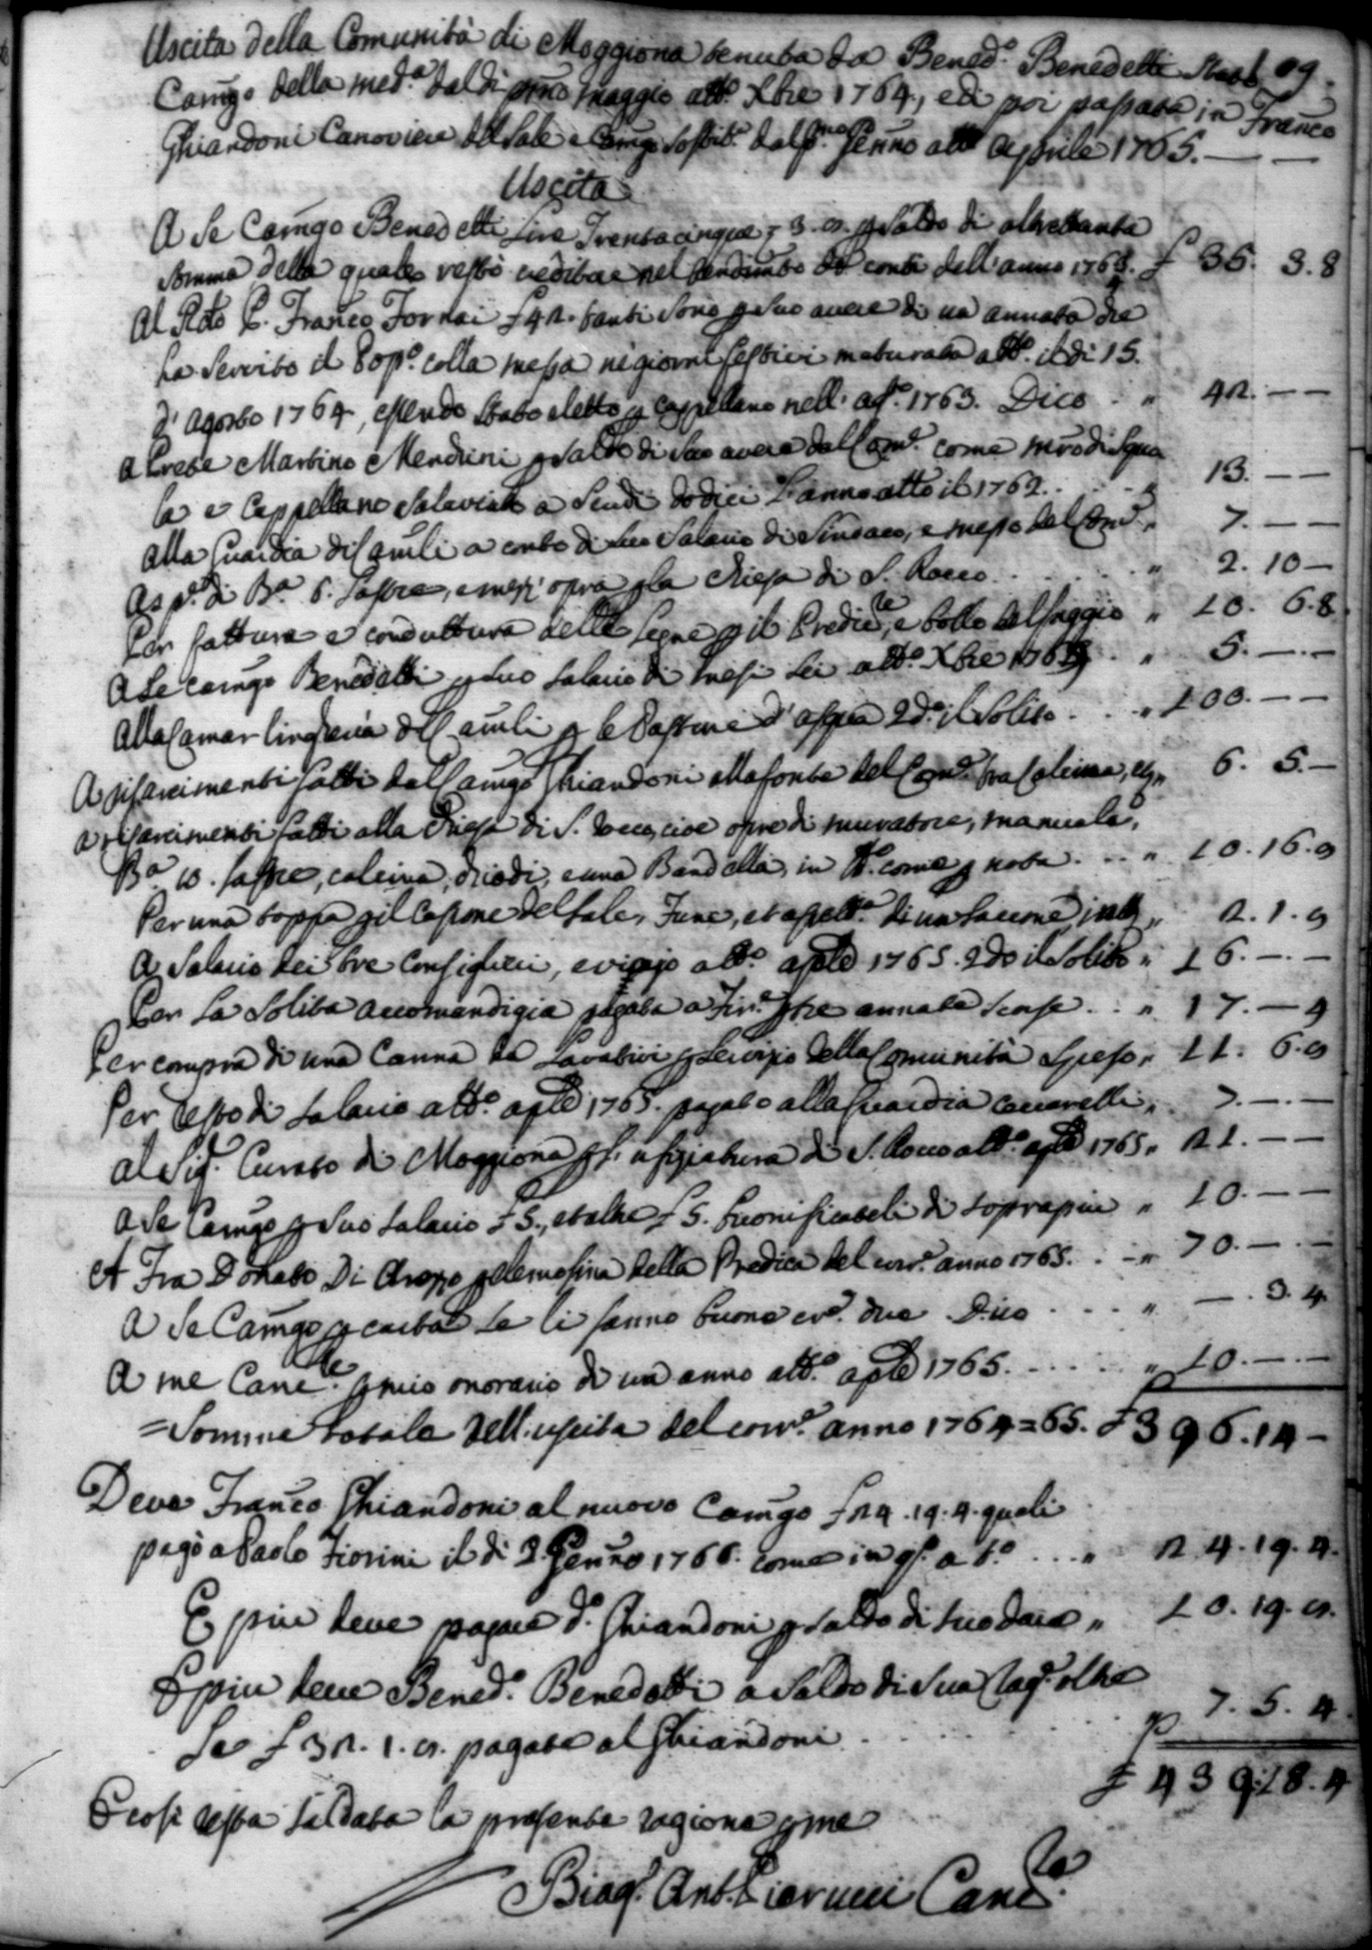 Uscita della Comunità di Moggiona tenuta da Bened.º Benedetti 
Camgº della med.ª dal dì pmo maggio att.º Xbre 1764, e di poi passata in Franco
Ghiandoni Canoviere del Sale e Camgº dal p.mo Genno att.º Aprile 1765. — —
Uscita
A Se Camgo Benedetti Lire Trentacinque 3. p Saldo di altrettanta
somma della quale restò creditore nel rendimto de conti dell'anno 1763. £ 35. 3. 8
Al Rdo P. Franco Fornai £ 42. tanti sono p suo avere di un annata che
ha servito il Pop.º colla messa ne giorni festivi maturata att.º il dì 15.
d'Agosto 1764, essendo stato eletto p cappellano nell' a.º 1763. Dico . " 42. — —
A Prete Martino Mendrini p saldo di suo avere dal Com.º come mro di Squo
la e Cappellano salariato a Scudi dodici l'anno atto il 1762. . . . " 13. — —
Alla Guardia di Camli a conto di suo salario di Sindaco, e messo del Com.º " 7. — —
A sp.ª di B.ª 6. lastre, e mezz' opra p la Chiesa di S. Rocco . . . . " 2. 10 —
Per fattura e conduttura delle legne p il Predic.re, e bollo del faggio " 10. 6. 8
A Se camgo Benedetti p suo salario di mesi sei att.º Xbre 1764 . " 5. — . —
Alla Camarlingheria di Camli p le Pasture d'Aspra 2do il solito . . . " 100. — —
A risarcimenti fatti dal Camgo Ghiandoni alla fonte del Com.º tra Calcina, " 6. 5. —
A risarcimenti fatti alla Chiesa di S. Rocco, cioè opre di muratore, manuale,
B.ª 10. lastre, calcina, chiodi, e una Bandella, in tt.º come p nota . . . " 10. 16. 
Per una toppa p il Cassone del Sale, Fune, et 
A Salario dei tre Consiglieri, e viagjo att.º aple 1765. 2do il solito " 16. — . —
Per la solita accomandigia pagata a Fir.e p tre annate scorse . . " 17. — 4
Per compra di una Canna da lavativi p servizio della Comunità speso " 11. 6. 
Per resto di salario att.º aple 1765. pagato alla Guardia " 7. — . —
Al Sig.r Curato di Moggiona p l' ufiziatura di S. Rocco att.º aple 1765 " 21. — —
A Se Camgo p suo salario £ 5., et altre £ 5. buonificateli di soprapiu " 10. — —
A Fra Donato Di Arezzo p elemosina della Predica del corr.e anno 1765. . . " 70. — . —
A Se Camgo p carta se li fanno buone cr.e due . Dico . . . . " — . 3. 4
A me Canc.re p mio onorario di un anno att.º aple 1765. . . . . . " 10. — . —
= Somma totale dell' uscita del corr.e anno 1764 = 65. £ 396. 14 —
Deve Franco Ghiandoni al nuovo Camgo £ 24. 19. 4. quali
pagò a Paolo Fiorini il dì 2. Genno 1766. come in q.º a c.º . . . " 24. 19. 4.
E piu deve pagare d.º Ghiandoni p saldo di suo dare " 10. 19. 
E piu deve Bened.º Benedetti a saldo di sua rag.e oltre
Le £ 32. 1. pagate al Ghiandoni . . . . . . " 7. 5. 4
£ 439. 18. 4
E così resta saldata la presente ragione p me
Biag.º Ant.º Canc.re